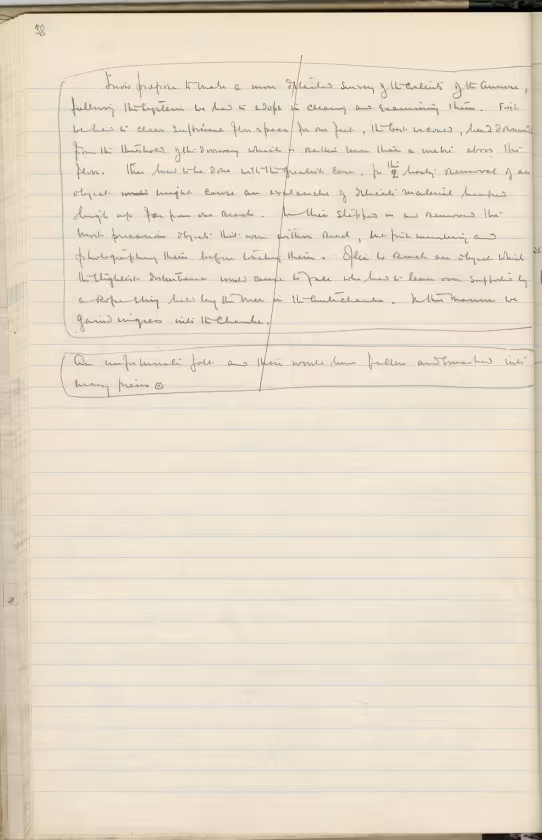 38
I now propose to make a more detailed survey of the contents of the Annexe,
following the system we had to adopt in clearing and examining them. First
we had to clear sufficient floor space for our feet, the best we could, head downwards
from the threshold of the doorway which is rather more than a metre above the
floor. This had to be done with the greatest care, for the hasty removal of an
object would might cause an avalanche of delicate material heaped
high up far from our reach. We then slipped in and removed the
most precarious object that was within reach, but first numbering and
photographing them before touching them. Often to reach an object which
the slightest disturbance would cause to fall we had to lean over supported by
a rope sling held by three men in the Antechamber. In this manner we
gained ingress into the Chamber.
An unfortunate jolt and they would have fallen and smashed into
many pieces